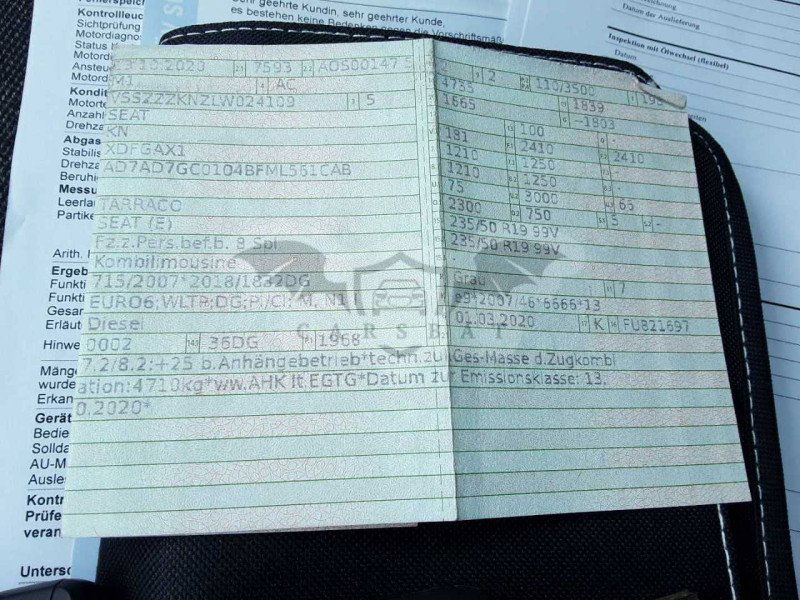 Kontrollleuc
Sichtprüfung
Motordiagnos
Status
Ansteue
Motord
Kondit
Motorte
Anzahl
Drehza
Abgas
Stabilis
Drehza
Beruhi
Messu
Leerla
Partike
Arith.
Ergeb
Funkti
Funkti
Gesan
Erläut
Hinwe
Mänge
wurde
Erkan
Gerät
Bedie
Sollda
AU-M
Ausle
Kontr
Prüfe
veran
Untersc
sehr geehrte Kundin, sehr geehrter Kunde,
es bestehen keine Bedenken gegen die Vorschriftsmäß
Datum der Auslieferung
Inspektion mit Ölwechsel (flexibel)
Datum
13.10.2020 7593 AOS00147 5
M1 AC
VSSZZZKNZLW024109 5
SEAT
KN
XDFGAX1
AD7AD7GC0104BFML551CAB
TARRACO
SEAT (E)
Fz.z.Pers.bef.b. 8 Spl
Kombilimousine
715/2007*2018/1832DG
EURO6;WLTP;DG;PI/CI; M, N1
Diesel
0002 36DG 1968
2 110/3500
4735 1839
1665 -1803
181 100
1210 2410 2410
1210 1250 -
75 1250 -
2300 3000 66
750 5 -
235/50 R19 99V
235/50 R19 99V
Grau 7
e9*2007/46*6666*13
01.03.2020 K FU821697
7.2/8.2:+25 b.Anhängebetrieb*techn.zul Ges-Masse d.Zugkombi
ation:4710kg*ww.AHK lt.EGTG*Datum zur Emissionsklasse: 13.
0.2020*
CARSBAT